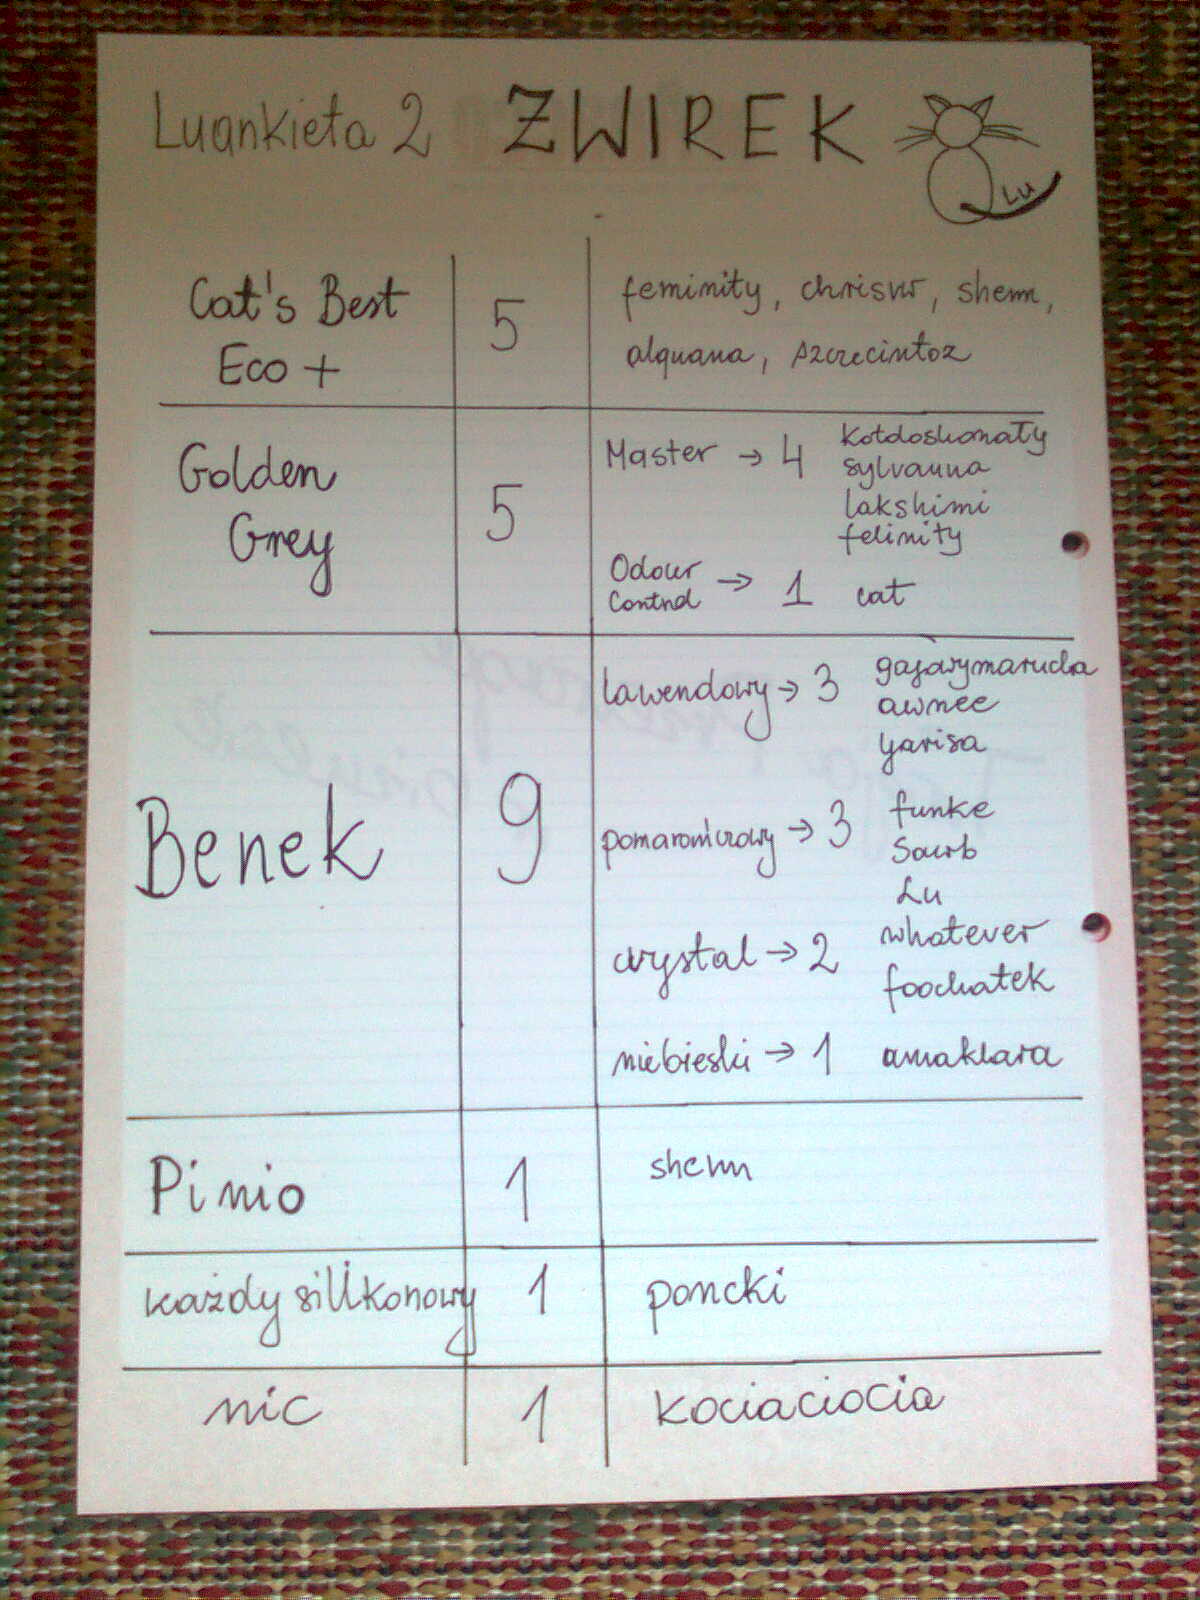 Luankieta 2 ŻWIREK
Lu
Cat's Best
Eco +
5
feminity, chrisvr, shenn,
alquana, szczecintoz
Golden
Grey
5
Master → 4
kotdoskonały
sylvanna
lakshimi
felinity
Odour
Control → 1 cat
Benek
9
lawendowy → 3
gajowymarucha
awnee
yarisa
pomarańczowy → 3
funke
Sourb
Lu
crystal → 2
whatever
foochatek
niebieski → 1 amaklara
Pinio 1 shenn
każdy silikonowy 1 poncki
nic 1 kociaciocia